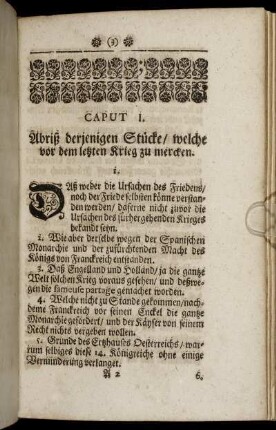 (3)
CAPUT I.
Abriß derjenigen Stücke/ welche
vor dem letzten Krieg zu mercken.
1.
Daß weder die Ursachen des Friedens/
noch der Friede selbsten könne verstan-
den werden/ daferne nicht zuvor die
Ursachen des fürhergehenden Krieges
bekandt seyn.
2. Wie aber derselbe wegen der Spanischen
Monarchie und der zufürchtenden Macht des
Königs von Franckreich entstanden.
3. Daß Engelland und Holland/ ja die gantze
Welt solchen Krieg voraus gesehen/ und deßwe-
gen die fameuse partage gemachet worden.
4. Welche nicht zu Stande gekommen/ nach-
deme Franckreich vor seinen Enckel die gantze
Monarchie gefordert/ und der Käyser von seinem
Recht nichts vergeben wollen.
5. Gründe des Ertzhauses Oesterreichs/ wa-
rum selbiges diese 14. Königreiche ohne einige
Verminderung verlanget.
A 2 6.